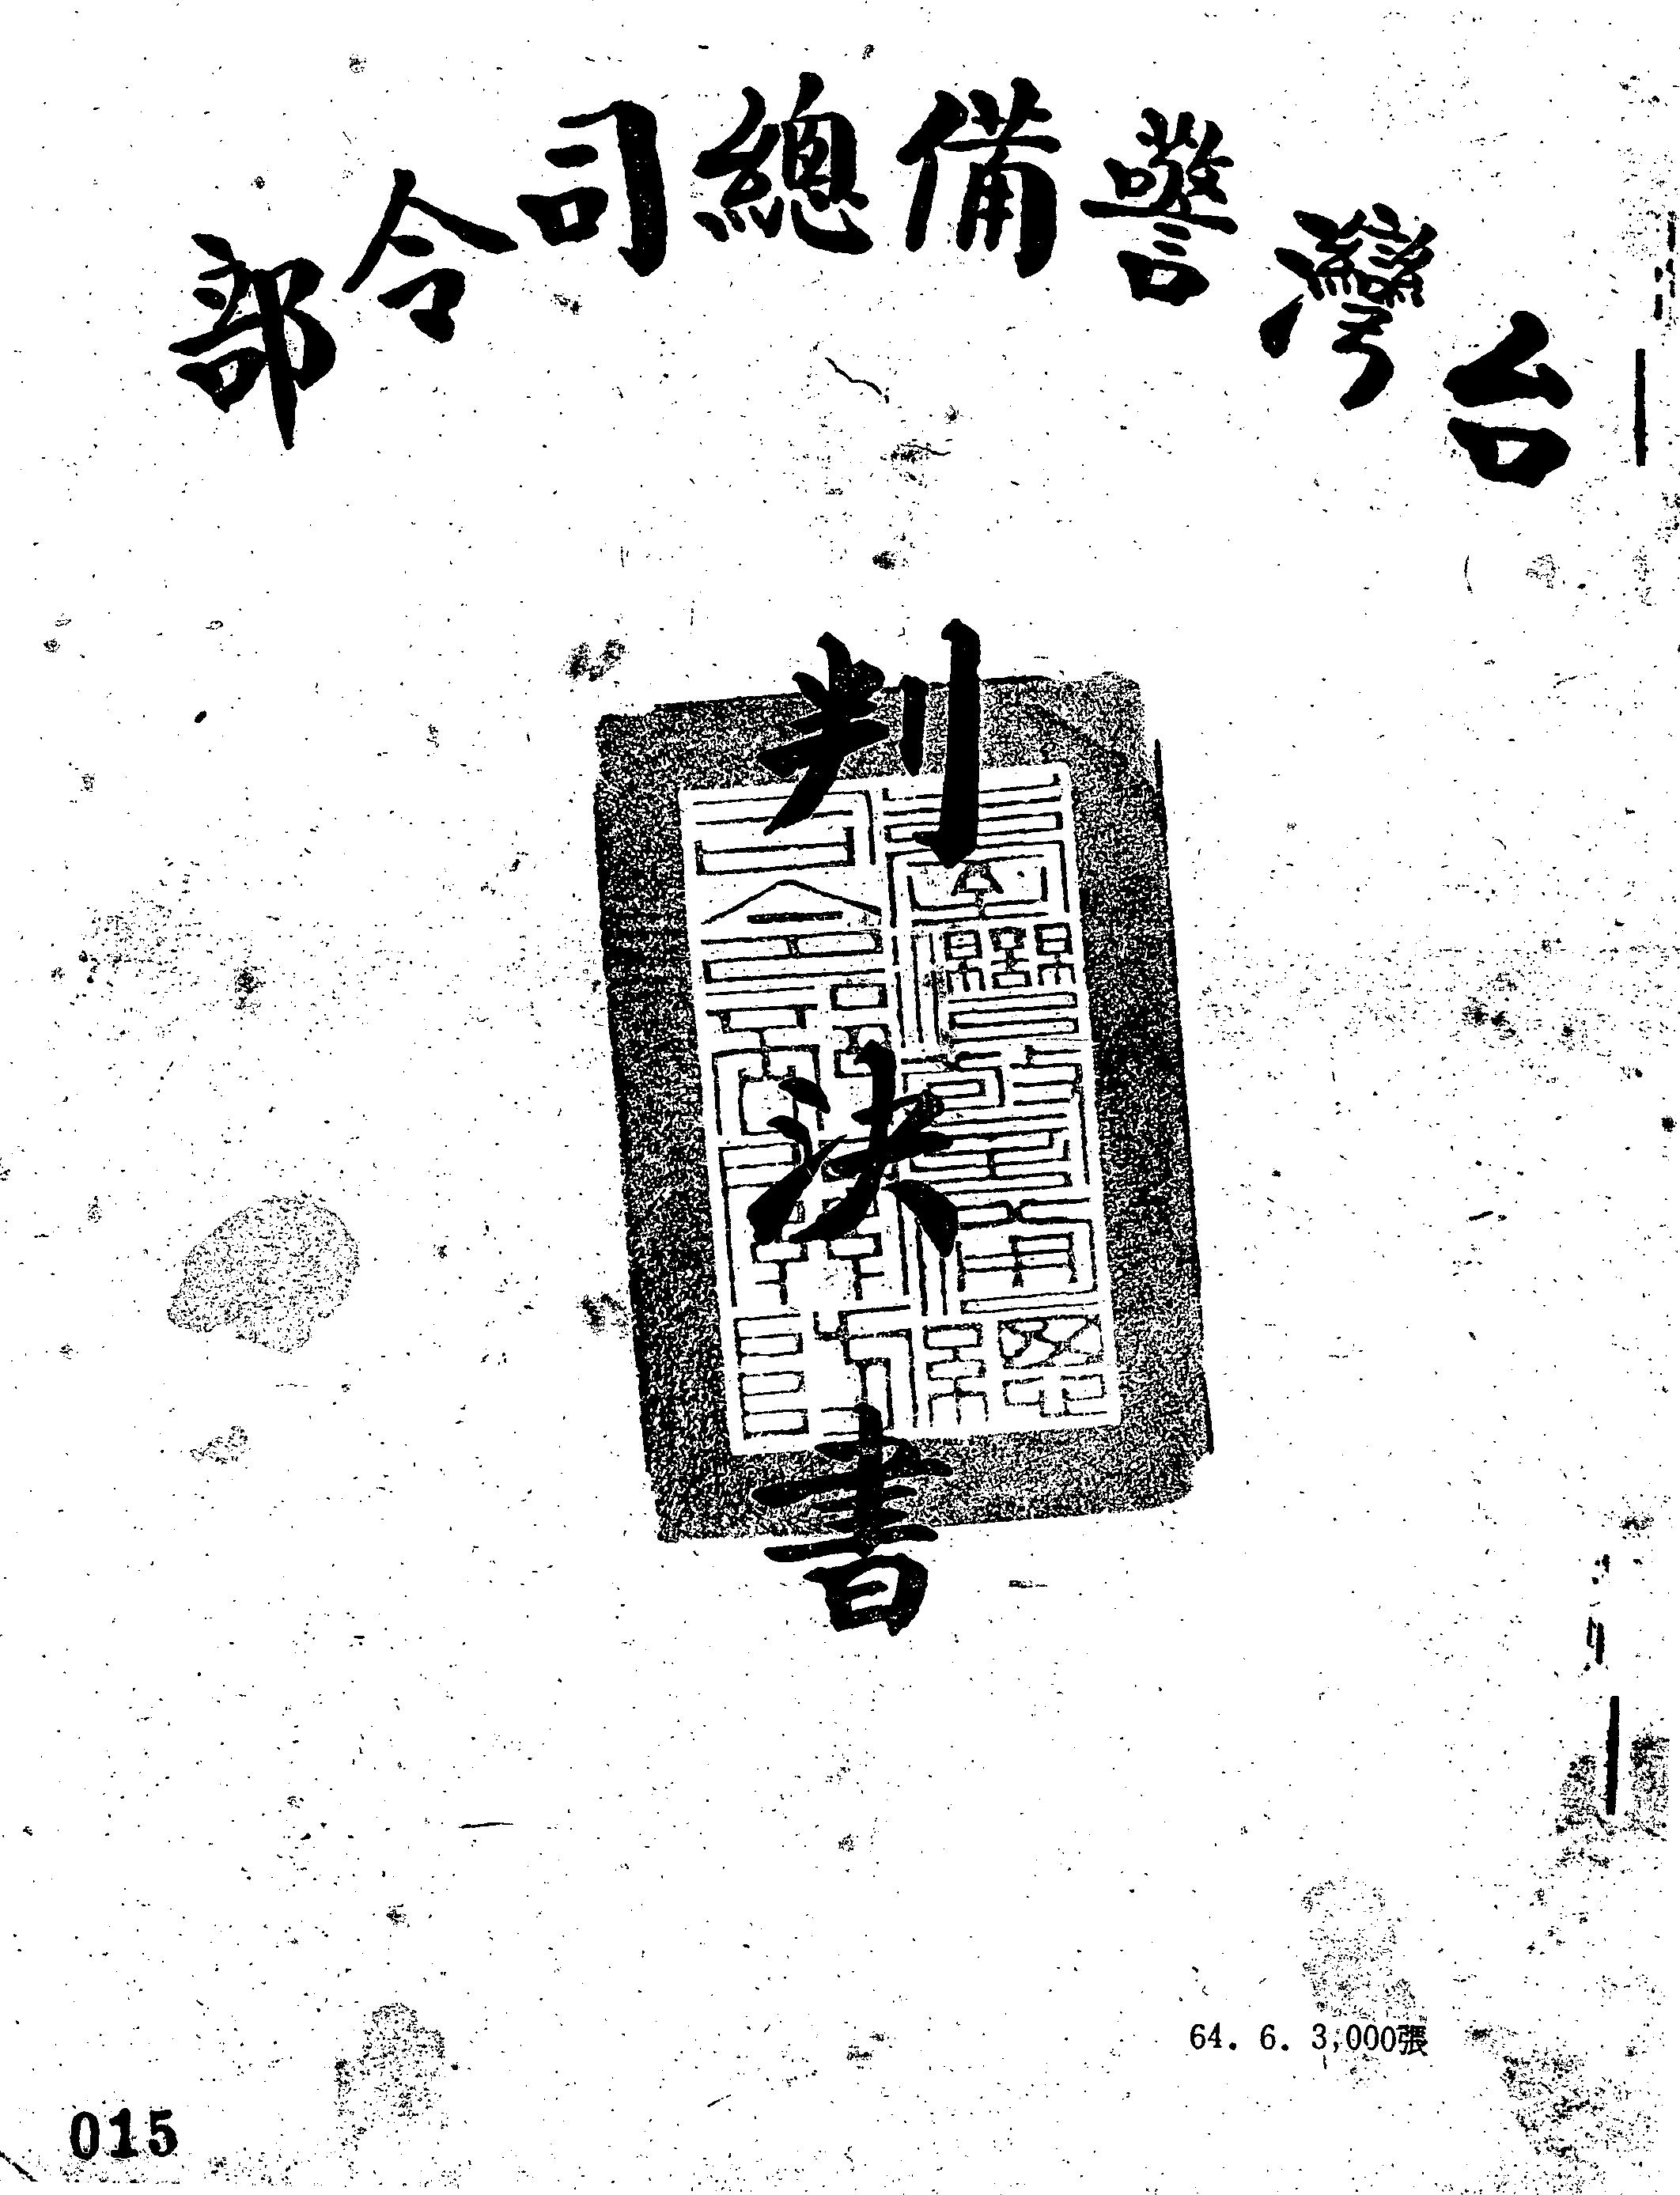 台灣警備總司令部
判決書
64. 6. 3,000張
015